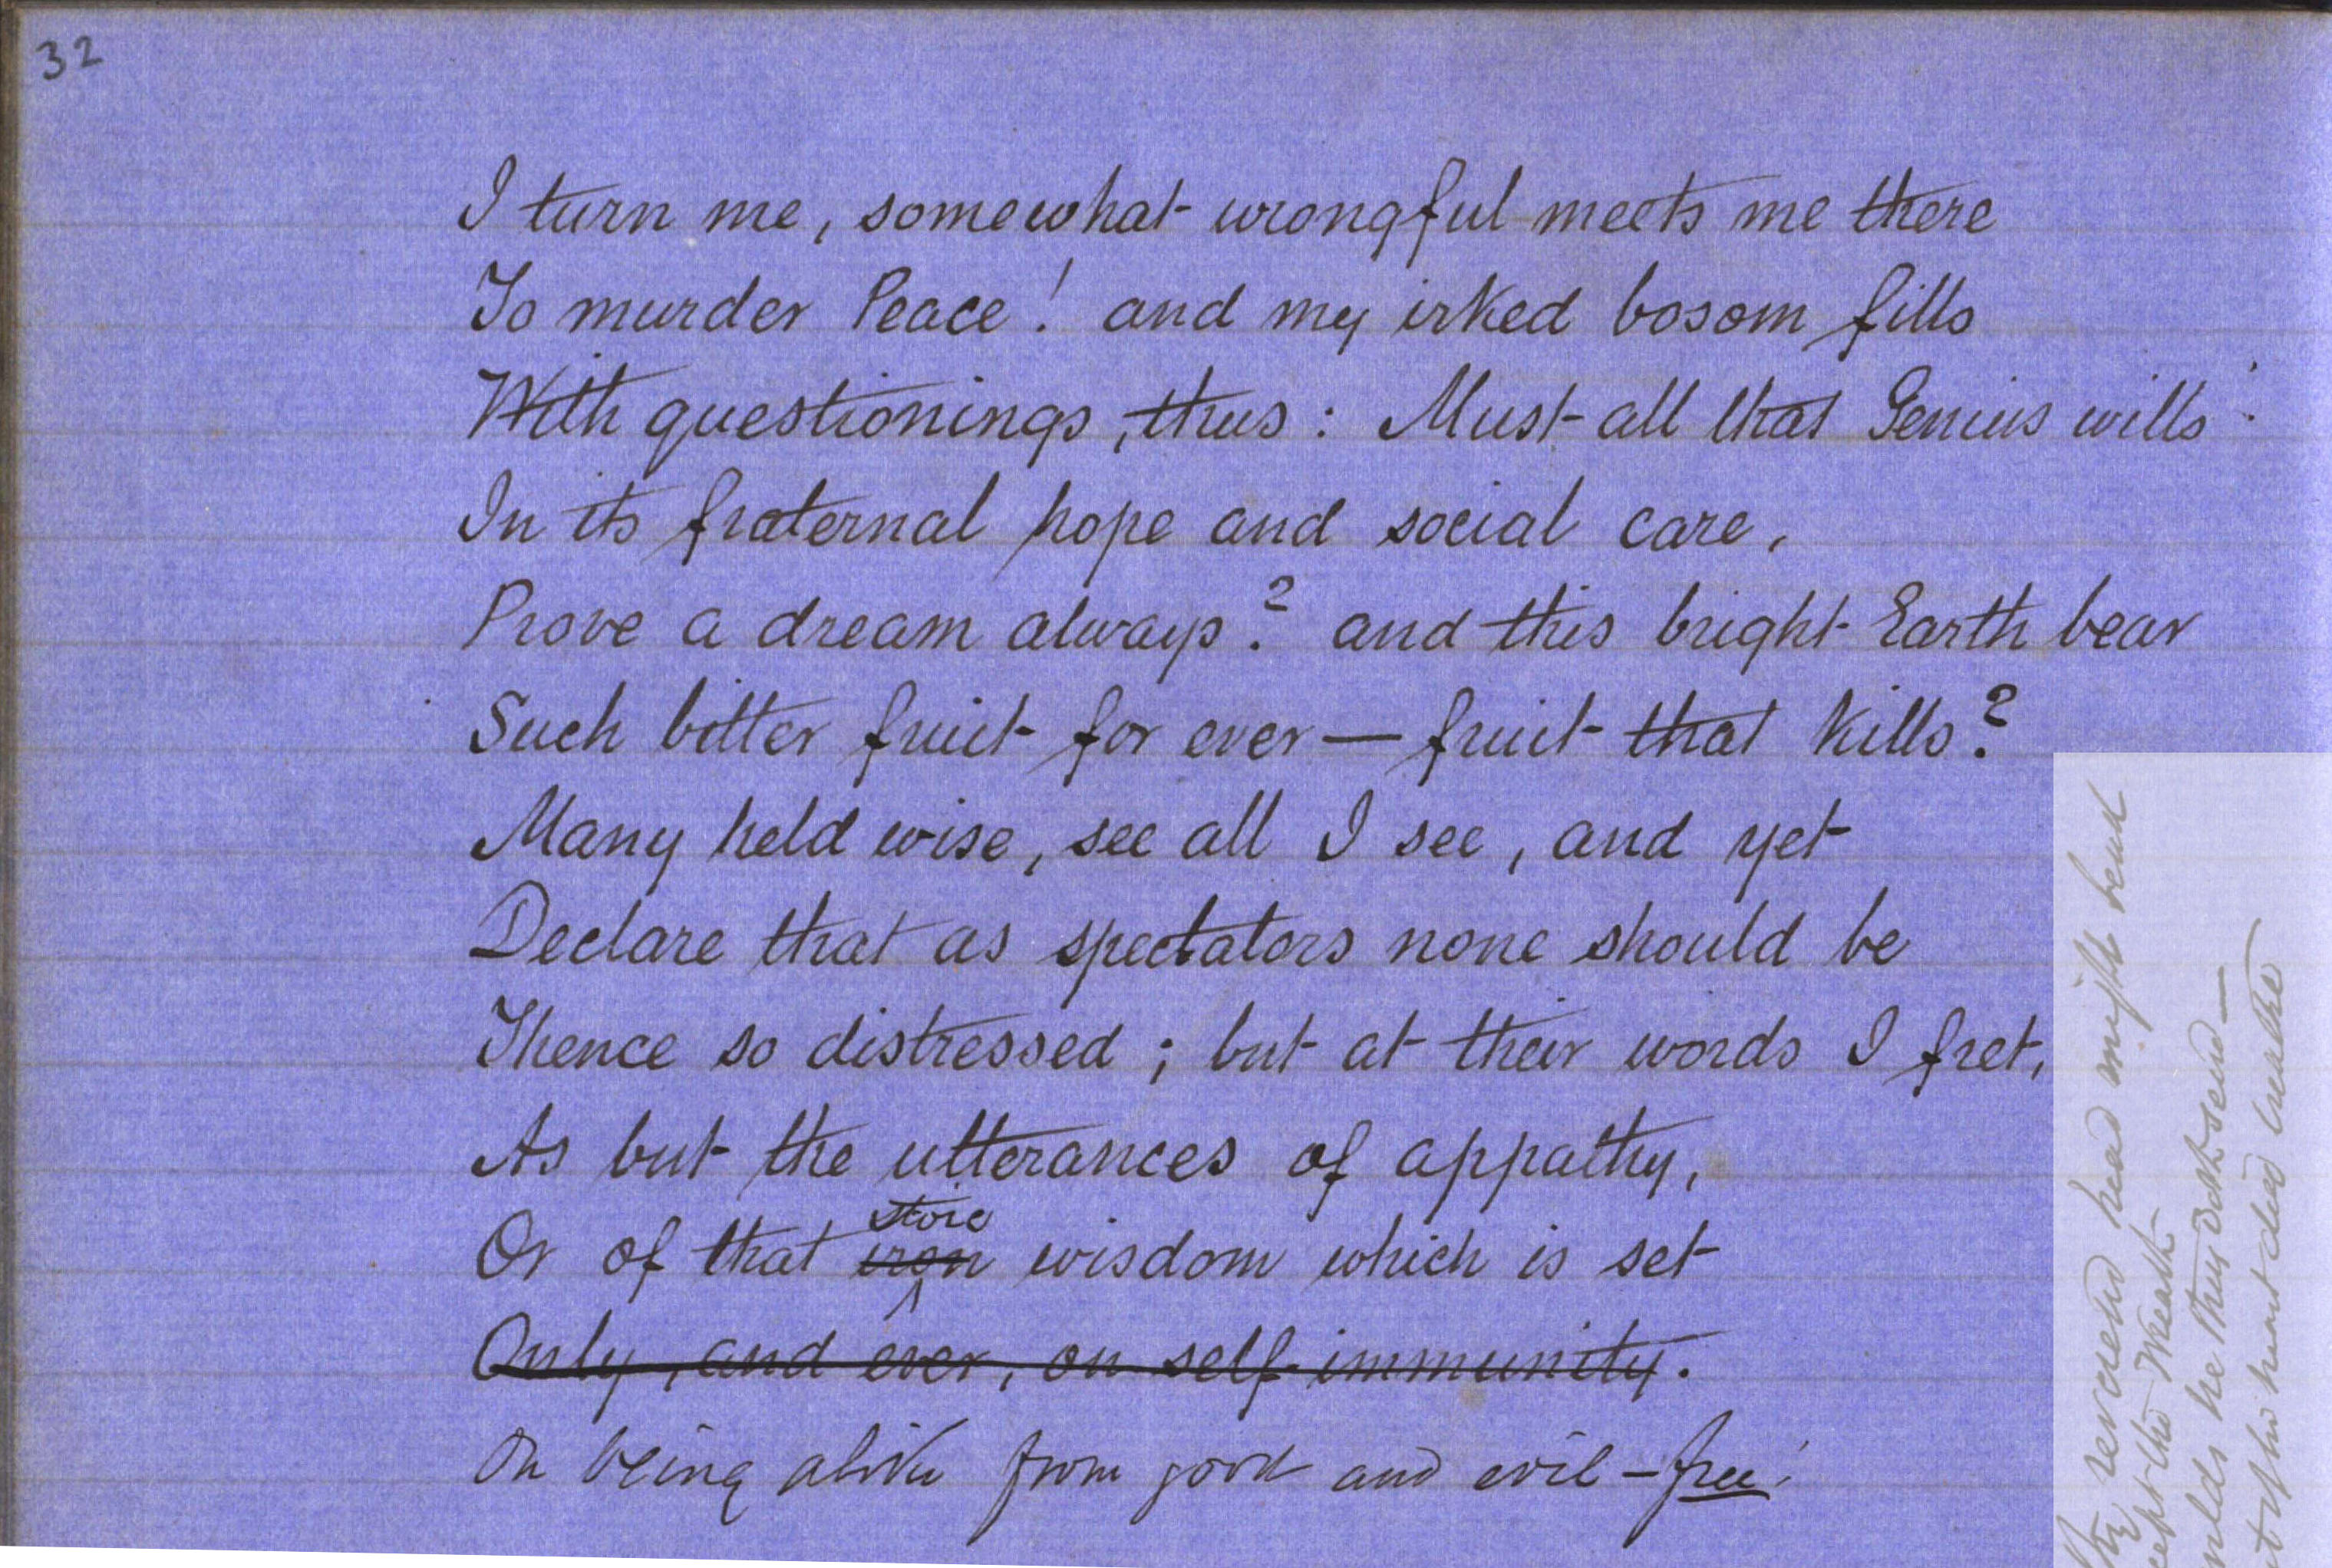 32
I turn me, somewhat wrongful meets me there
To murder Peace! and my irked bosom fills
With questionings, thus: Must all that Genius wills
In its fraternal hope and social care,
Prove a dream always? and this bright Earth bear
Such bitter fruit for ever — fruit that kills?
Many held wise, see all I see, and yet
Declare that as spectators none should be
Thence so distressed; but at their words I fret,
As but the utterances of appathy,
stoic
Or of that iron wisdom which is set
Only, and ever, on self-immunity.
On being alike from good and evil – free!
head might bend
the Wreath
he thus doth send —